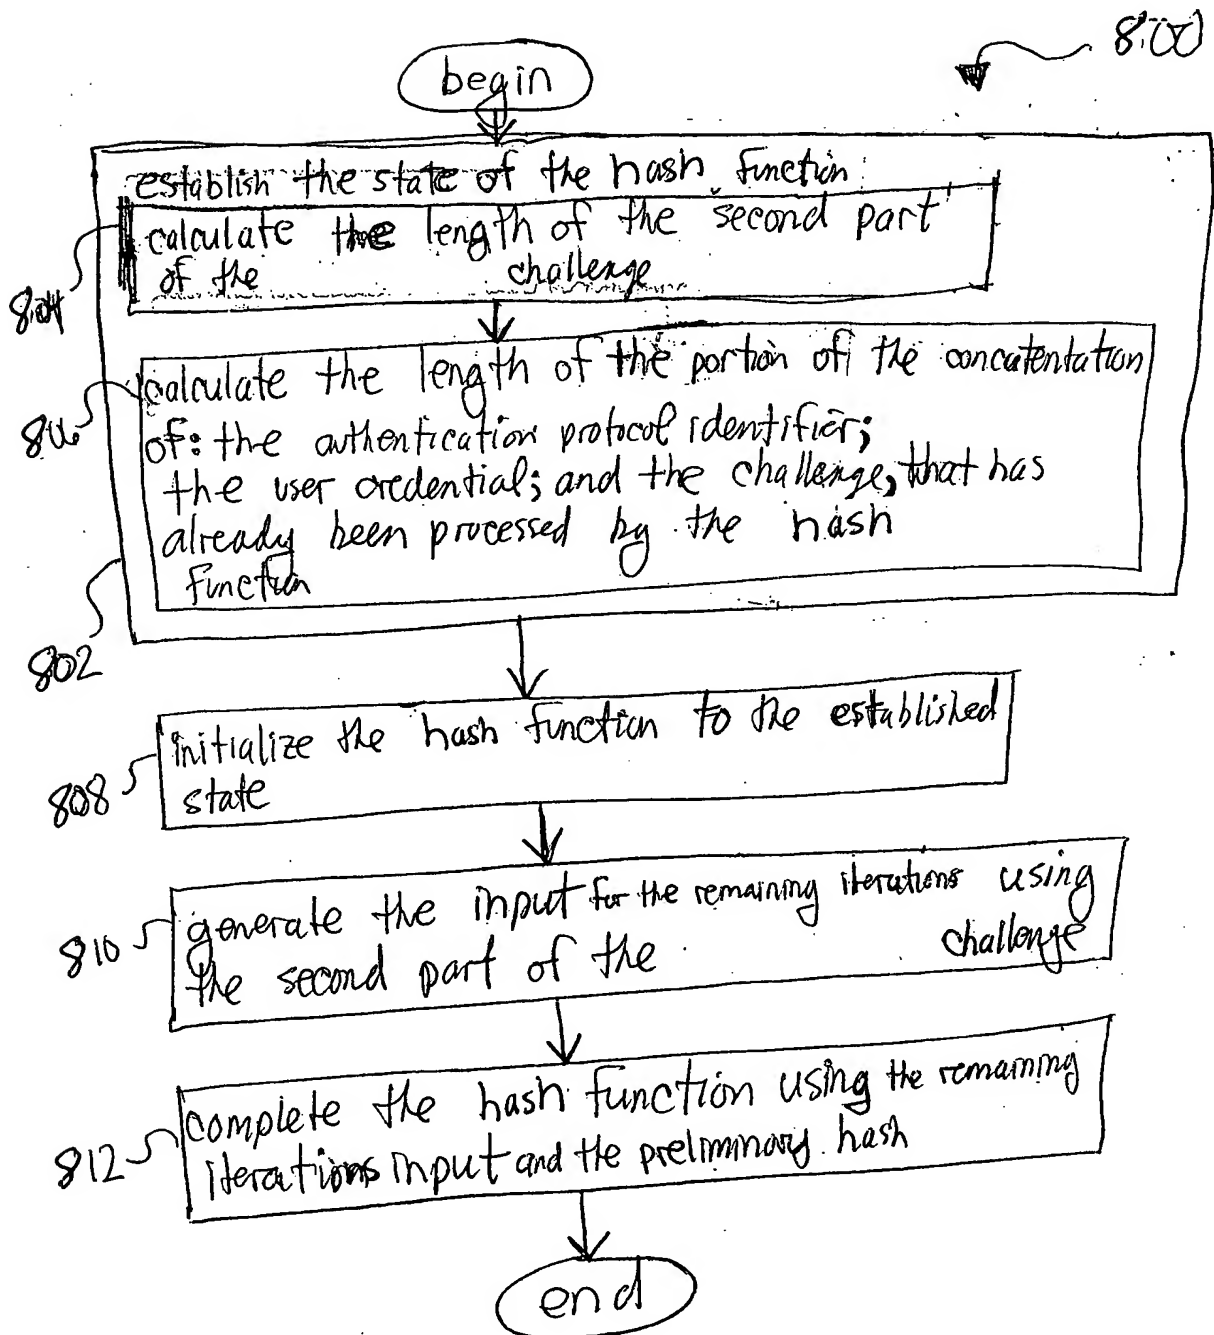 800
begin
establish the state of the hash function
calculate the length of the second part
of the challenge
804
calculate the length of the portion of the concatentation
of: the authentication protocol identifier;
the user credential; and the challenge, that has
already been processed by the hash
function
806
802
initialize the hash function to the established
state
808
generate the input for the remaining iterations using
the second part of the challenge
810
complete the hash function using the remaining
iterations input and the preliminary hash
812
end